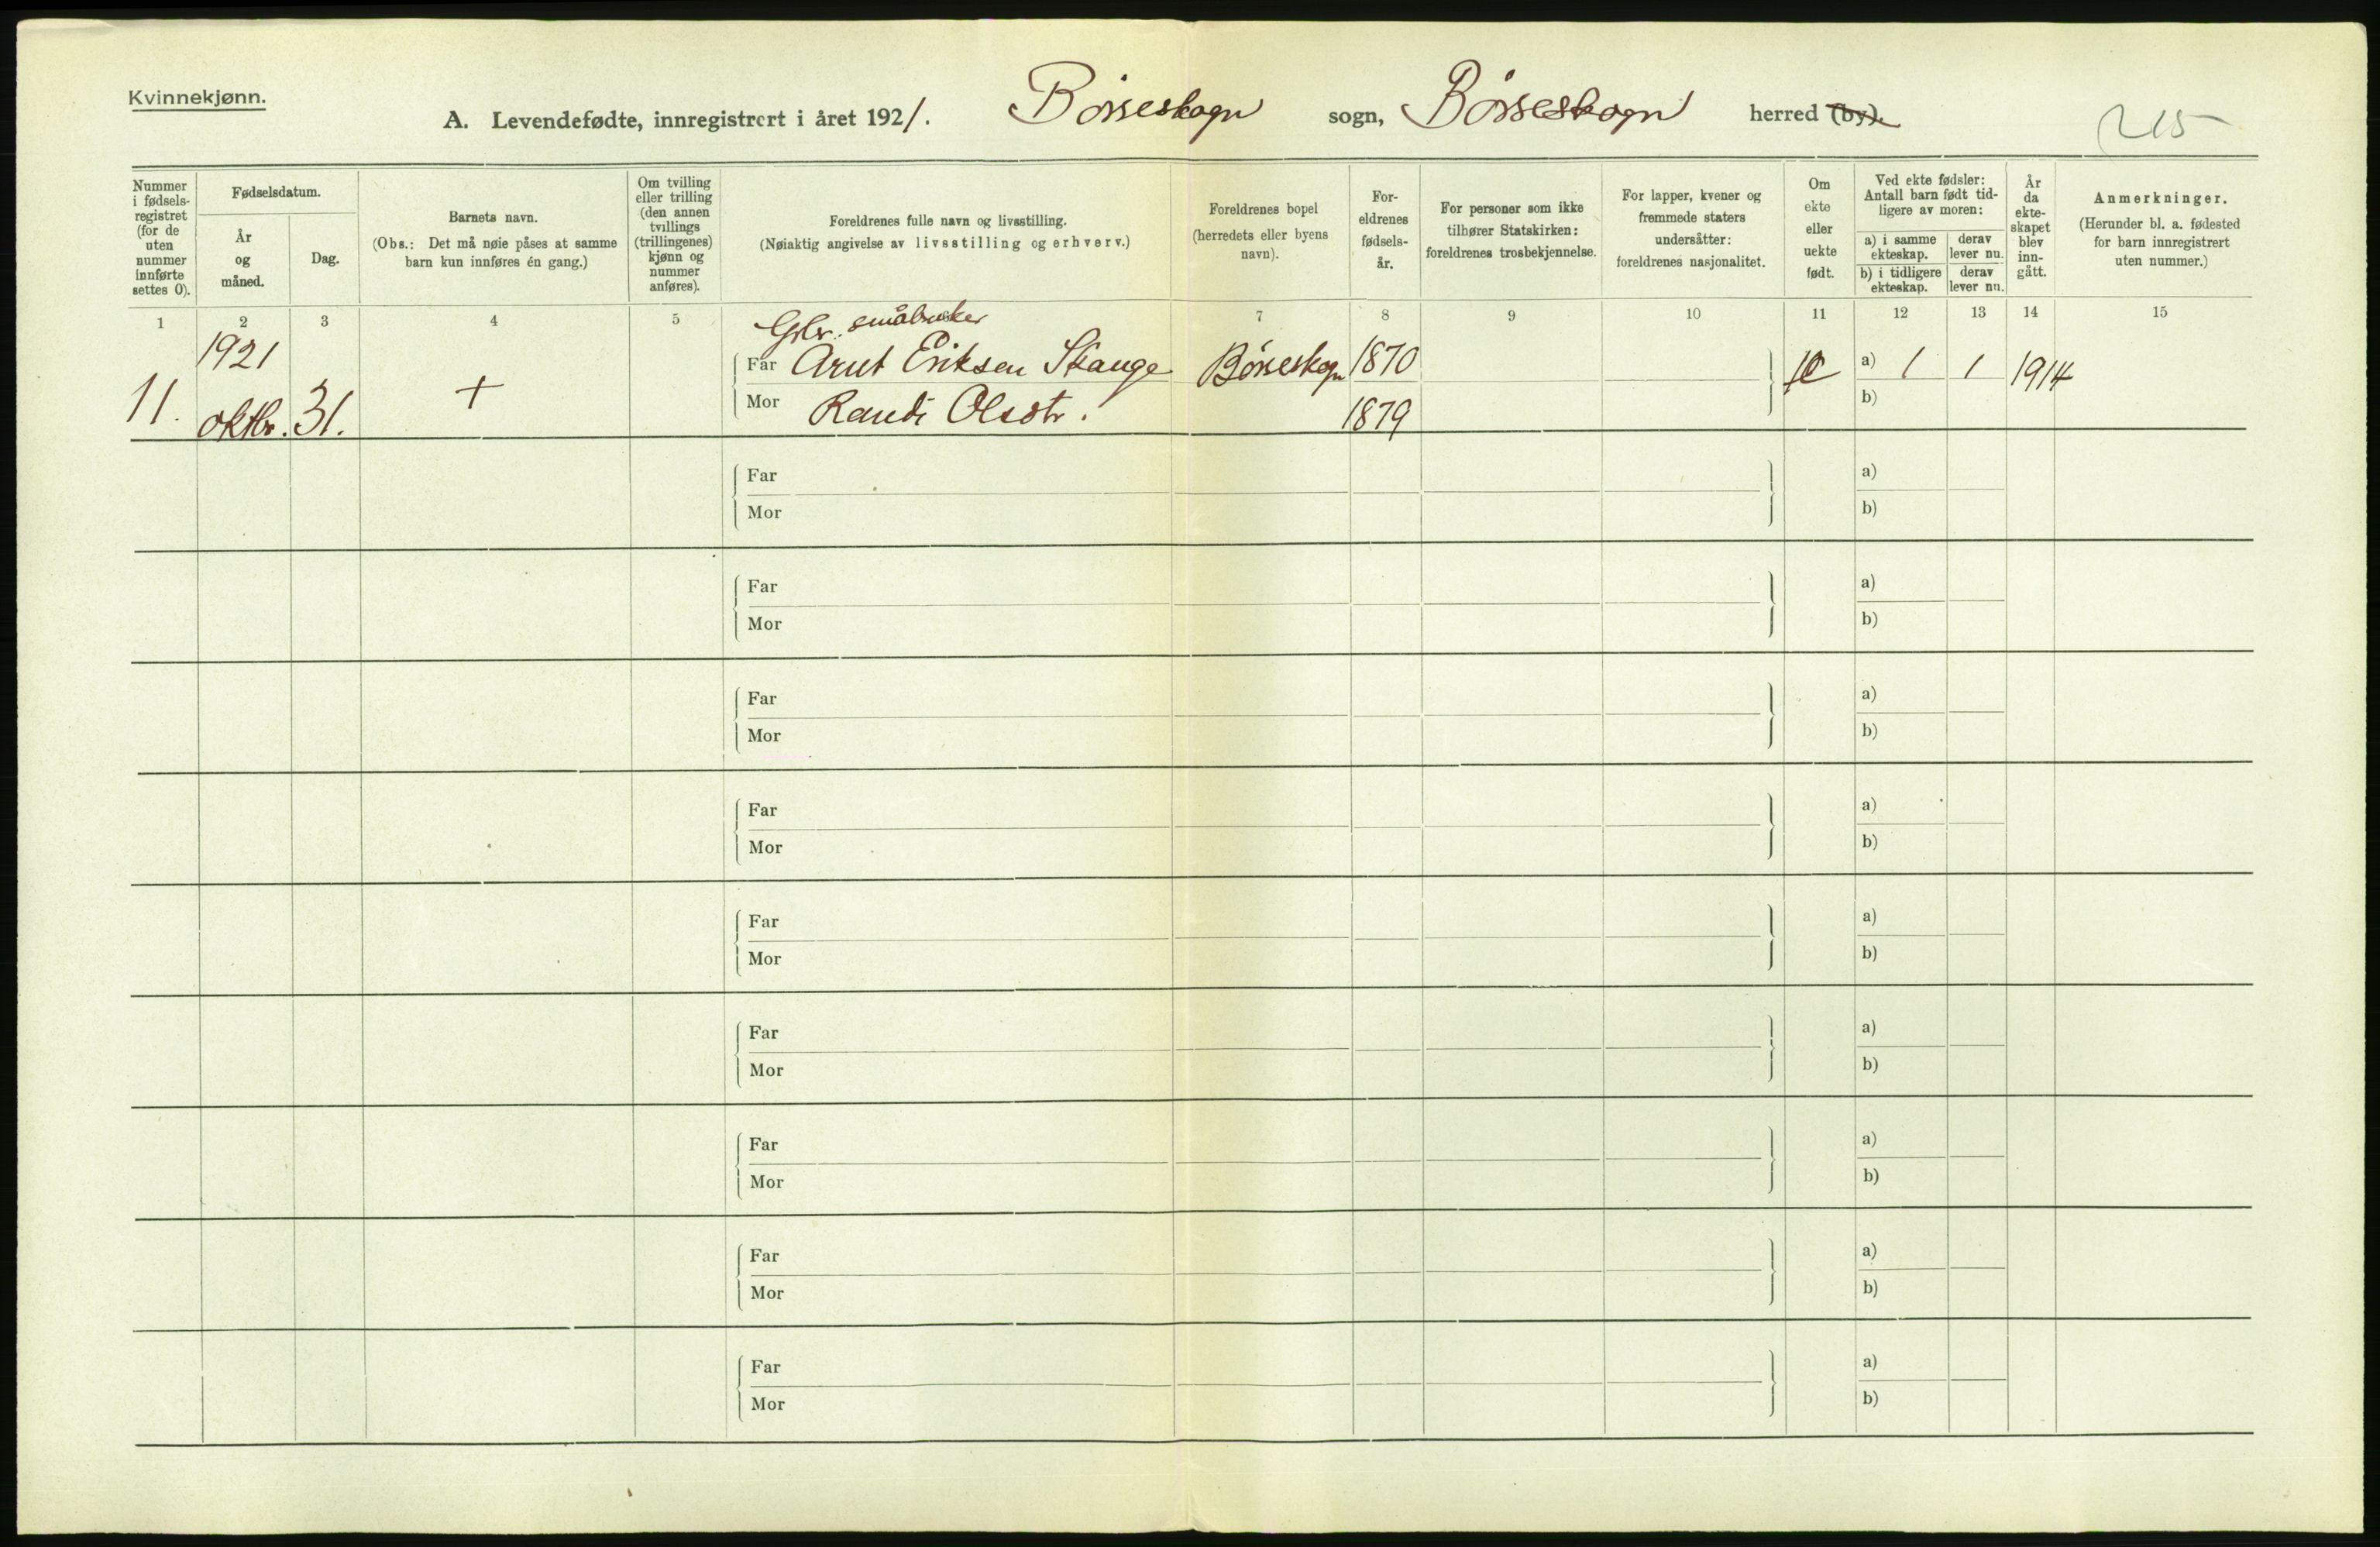 Kvinnekjønn.
A. Levendefødte, innregistrert i året 1921. Børseskogn sogn, Børseskogn herred (by).
215
Nummer i fødsels-registret (for de uten nummer innførte settes 0).
Fødselsdatum.
År og måned.
Dag.
Barnets navn.
(Obs.: Det må nøie påses at samme barn kun innføres én gang.)
Om tvilling eller trilling (den annen tvillings (trillingenes) kjønn og nummer anføres).
Foreldrenes fulle navn og livsstilling.
(Nøiaktig angivelse av livsstilling og erhverv.)
Foreldrenes bopel (herredets eller byens navn).
For-eldrenes fødsels-år.
For personer som ikke tilhører Statskirken: foreldrenes trosbekjennelse.
For lapper, kvener og fremmede staters undersåtter: foreldrenes nasjonalitet.
Om ekte eller uekte født.
Ved ekte fødsler: Antall barn født tid-ligere av moren:
a) i samme ekteskap. derav lever nu.
b) i tidligere ekteskap. derav lever nu.
År da ekte-skapet blev inn-gått.
Anmerkninger.
(Herunder bl. a. fødested for barn innregistrert uten nummer.)
1 2 3 4 5 7 8 9 10 11 12 13 14 15
Gbr. småbruker
1921 Far Arnt Eriksen Skauge Børseskogn 1870 a) 1 1 1914
11. oktbr. 31. + Mor Randi Olsdtr. 1879 b)
Far a)
Mor b)
Far a)
Mor b)
Far a)
Mor b)
Far a)
Mor b)
Far a)
Mor b)
Far a)
Mor b)
Far a)
Mor b)
Far a)
Mor b)
Far a)
Mor b)